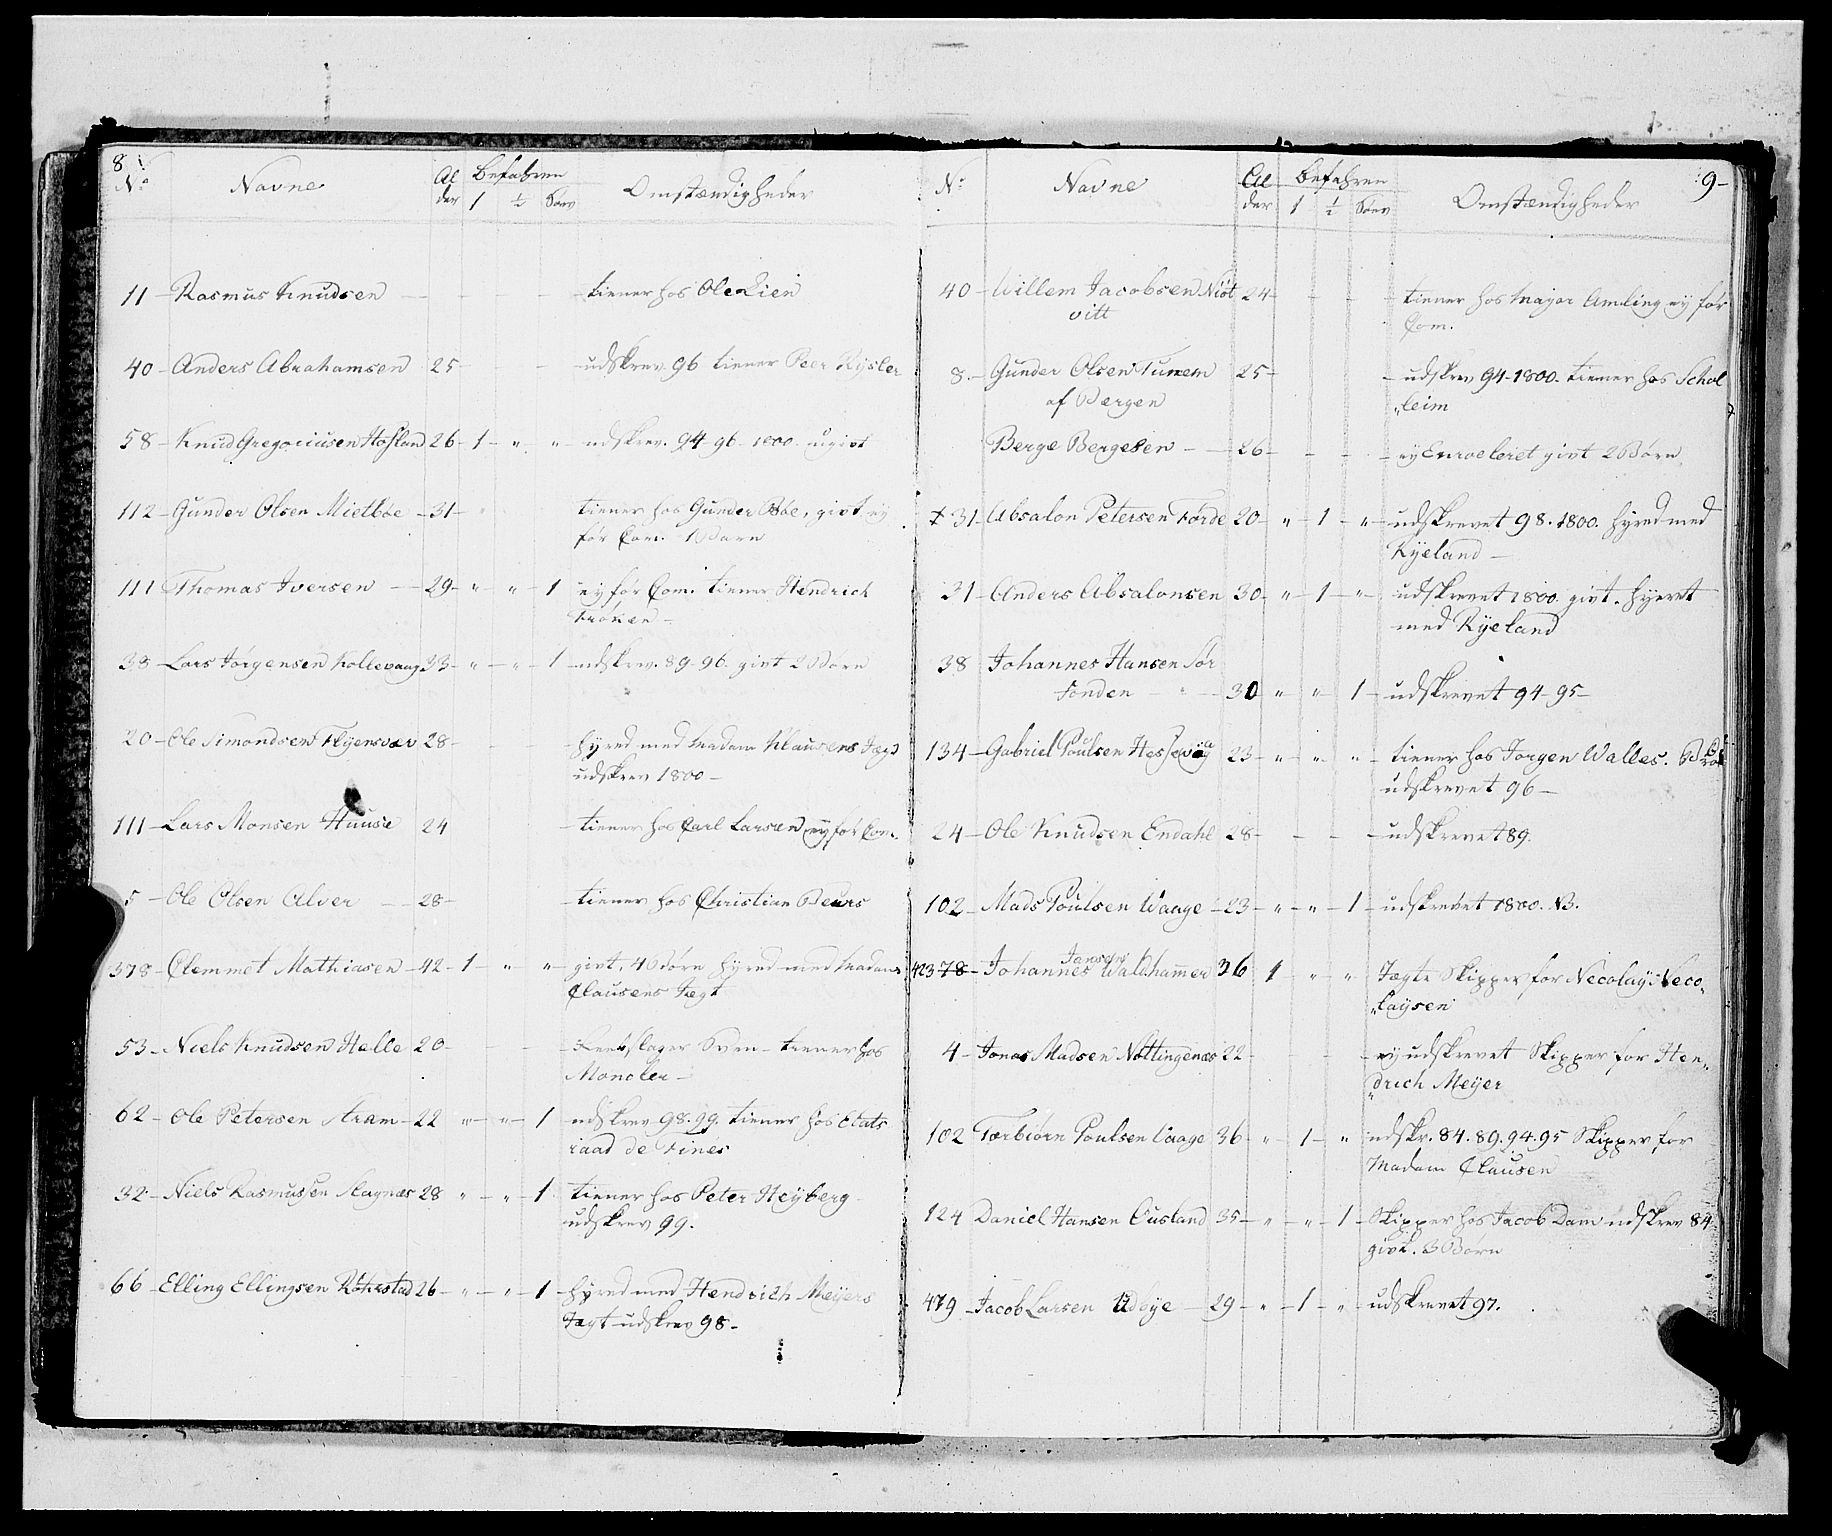 8
No Navne Alder Befahren 1 ½ Søev Omstændigheder
11 - Rasmus Knudsen - - - - tiener hos Ole Lien
40 - Anders Abrahamsen 25 - - - udskrev 96 tiener Peer Rysler
58 - Knud Gregoriusen Hofland 26 - 1 - " " udskrev. 94-96 1800 ugivt
112 - Gunder Olsen Mietbøe - 31 - " tiener hos Gunder Bøe, givt ey
før Com. 1 Barn
111 Thomas Iversen - 29 - " " 1 ey før Com. tiener Hendrich
Kroken -
38 - Lars Jørgensen Kollevaag 33 - " - " 1 - udskrev. 89-96 givt 2 Børn
20 - Ole Simondsen Flÿensvær 28 - - - hÿred med Madam Klausens Jægt
udskrev 1800 -
111 - Lars Monsen Huuse 24 - tiener hos Carl Larsen ey før Com.
5 - Ole Olsen Alver - 28 - - tiener hos Christian
378 - Clemmet Mathiasen - 42 - 1 - " - " - givt, 4 Børn hÿred med Madam
Clausens Jægt
53 - Niels Knudsen Helle 20 - - - Sven - tiener hos
Moncler -
62 - Ole Petersen Aram - 22 " - " - 1 udskrev 98.99. tiener hos Etats
raad de Fines
32 - Niels Rasmussen Magnæs 28 " - " - 1 tiener hos Peter Heÿberg
udskrev 99.
66 - Elling Ellingsen 26 - " - " - 1 - hÿred med Hendrich Meÿers
Jægt udskrev 98 -
9 -
No Navne Alder Befahren 1 ½ Søev Omstændigheder
40 - Willem Jacobsen Niöt 24 - - - - tiener hos Mayor Amling ey før
vitt Com.
8. - Gunder Olsen Tunem 25 - - udskrev 94-1800. tiener hos Schol
af Bergen "leim
Berge Bergesen - 26 - - - - ey Enroeleret givt 2 Børn.
31 - Absalon Petersen Førde 20 - " - 1 - " - udskrevet 98. 1800. hÿred med
Kÿeland -
31 - Anders Absalonsen 30 - " - 1 - " - udskrevet 1800 givt. hÿeret
med Kÿeland
38 Johannes Hansen Sør
fonden - 30 " " 1 - udskrevet 94-95 -
134 - Gabriel Poulsen Hessevaag 23 - " " " - tiener hos Jørgen Walles.
udskrevet 96 -
24 - Ole Knudsen Endahl 28 - - - - udskrevet 89.
102 - Mads Poulsen Waage - 23 - " - " - 1 - udskrevet 1800. NB.
Jansen
42 378 - Johannes Waldhammer 36 1 " " Jægte Skipper for Necolaÿ Neco-
"laÿsen
4 - Jonas Madsen Nøttingenæs 22 - - - - ey udskrevet Skipper for Hen-
"drich Meÿer
102 Tørbiørn Poulsen Vaage 36 - " - 1 - " udskr. 84.89.94.95 Skipper for
Madam Clausen
124 Daniel Hansen Ousland 35 - " - " - 1 - Skipper hos Jacob Dam udskrev 84
givt. 3 Børn
479 - Jacob Larsen Udøÿe - 29 - " - 1 - " - udskrevet 97.